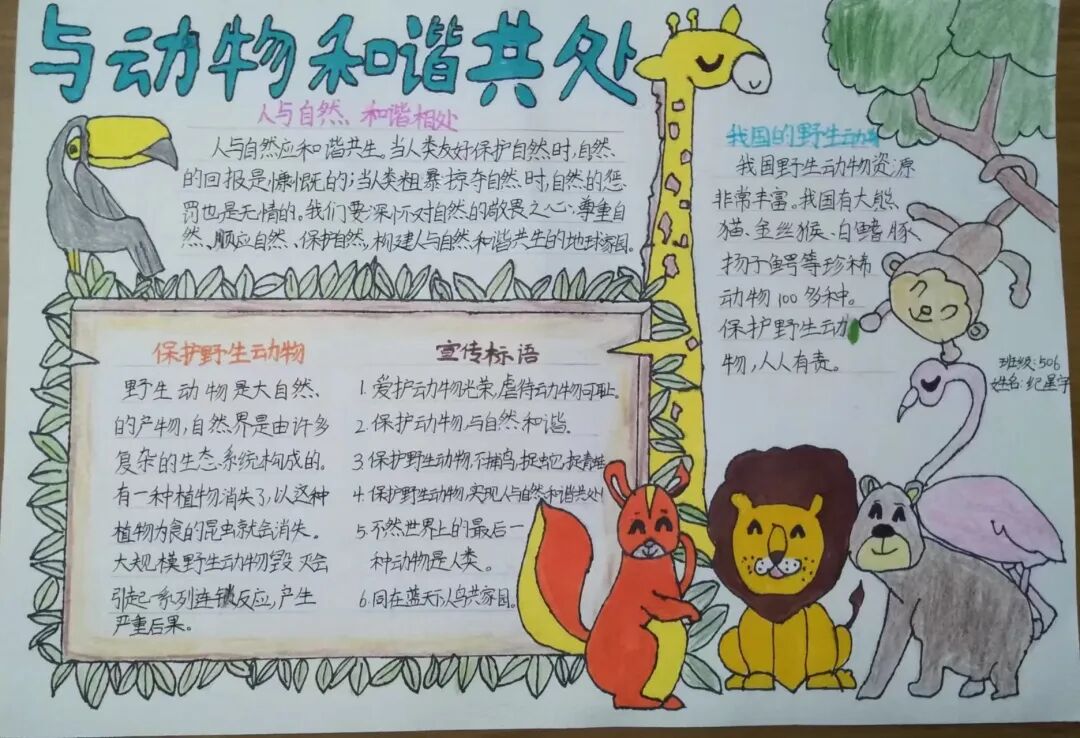 与动物和谐共处
人与自然、和谐相处
人与自然应和谐共生。当人类友好保护自然时,自然
的回报是慷慨的;当人类粗暴掠夺自然时,自然的惩
罚也是无情的。我们要深怀对自然的敬畏之心,尊重自
然、顺应自然、保护自然,构建人与自然和谐共生的地球家园。
我国的野生动物
我国野生动物资源
非常丰富。我国有大熊
猫、金丝猴、白鳍豚、
扬子鳄等珍稀
动物100多种。
保护野生动
物,人人有责。
班级:506
姓名:纪星宇
保护野生动物
野生动物是大自然
的产物,自然界是由许多
复杂的生态系统构成的。
有一种植物消失了,以这种
植物为食的昆虫就会消失。
大规模野生动物毁灭会
引起一系列连锁反应,产生
严重后果。
宣传标语
1.爱护动物光荣,虐待动物可耻。
2.保护动物,与自然和谐.
3.保护野生动物,不捕鸟,捉蛇,捉青蛙
4.保护野生动物,实现人与自然和谐共处!
5.不然世界上的最后一
种动物是人类。
6.同在蓝天下,人鸟共家园。